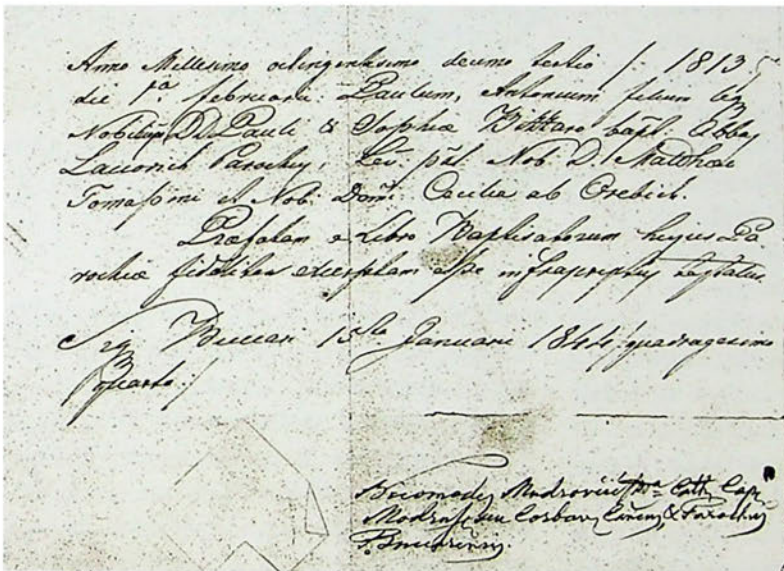 Anno Millesimo octingentesimo decimo tertio /: 1813
die 1ª februarii: Paulum, Antonium filium
Nobilium DD. Pauli & Sophiæ Bizzaro bapt: Abbas
Parochus, Lev: Nob. D. Matthæo
Tomassini et Nob. Domi Cæcilia ab Orebich.
Præfatam e Libro Baptisatorum hujus Pa
rochiæ fideliter excerptam esse infrascriptus testatur.
Sig. Buccari 15ta Januarii 1844 / quadragesimo
quarto :/
Nicomedes Cath. Cap.
Modrus seu Corbav. & Parochus